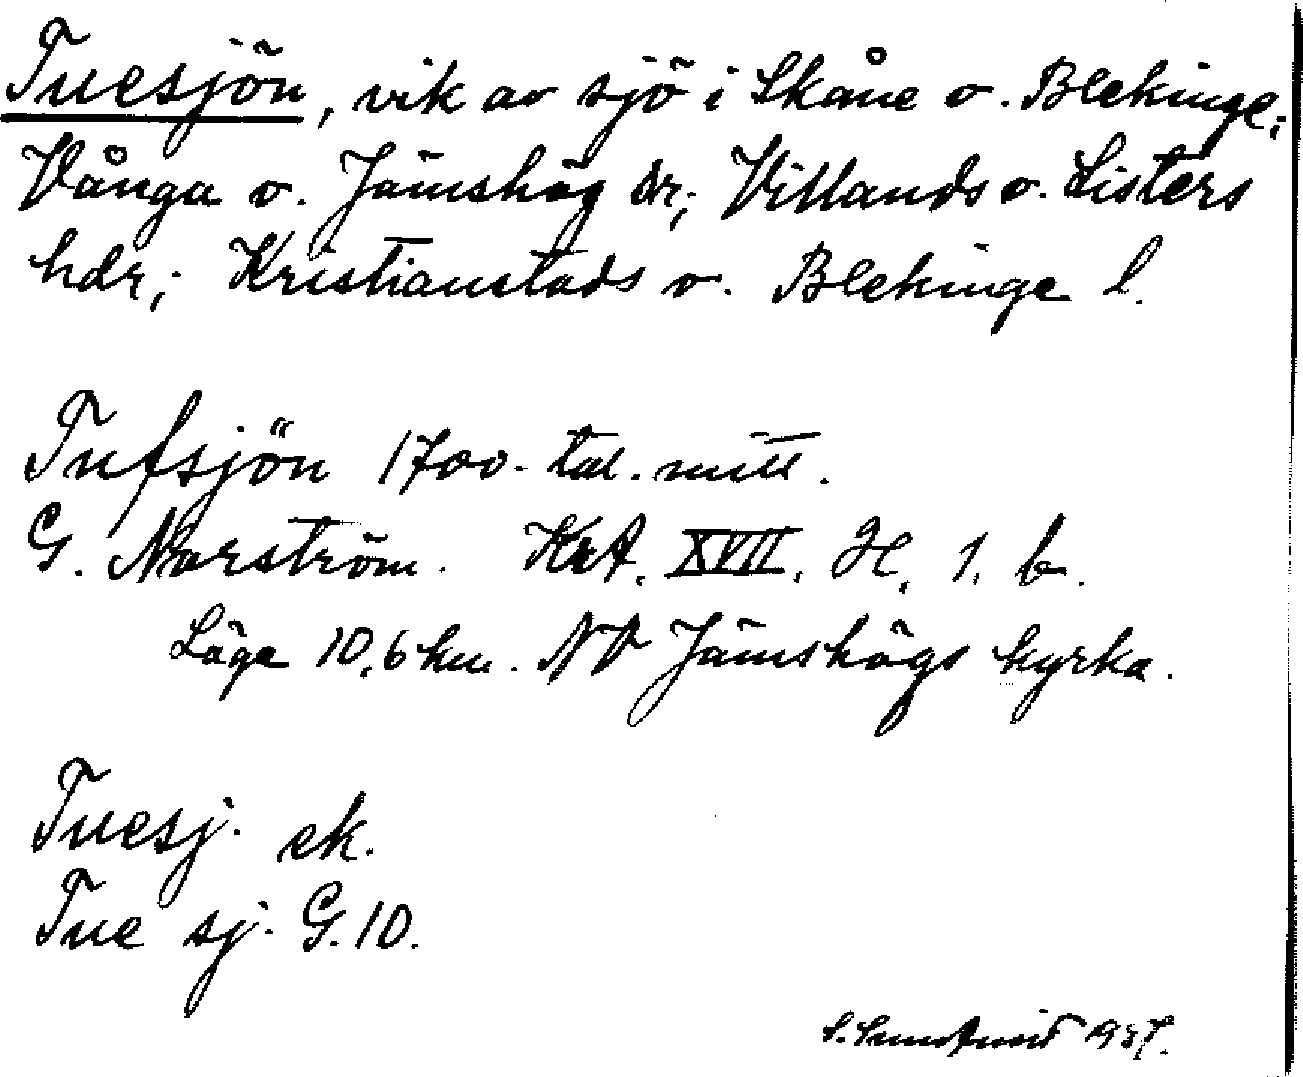 Tuesjön, vik av sjö i Skåne o. Blekinge;
Vånga o. Jämshög sr; Villands o. Listers
hdr; Kristianstads o. Blekinge l.
Tufsjön 1700-tal. mitt.
G. Norström. KrA. XVII. H. 1. b.
Läge 10,6 km. NV Jämshögs kyrka.
Tuesj. ek.
Tue sj. G. 10.
S. 1937.